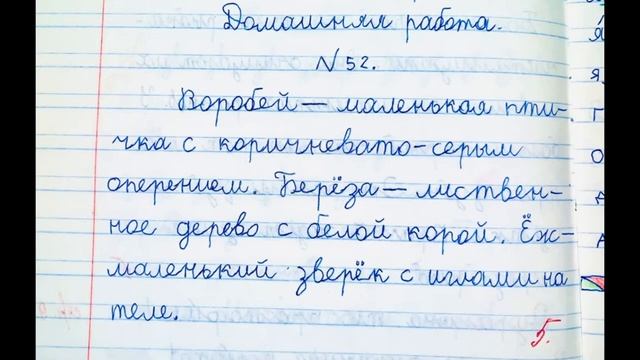 Домашняя работа.
N 52.
Воробей — маленькая пти-
чка с коричневато-серым
оперением. Берёза — листвен-
ное дерево с белой корой. Ёж-
маленький зверёк с иглами на
теле.
5.